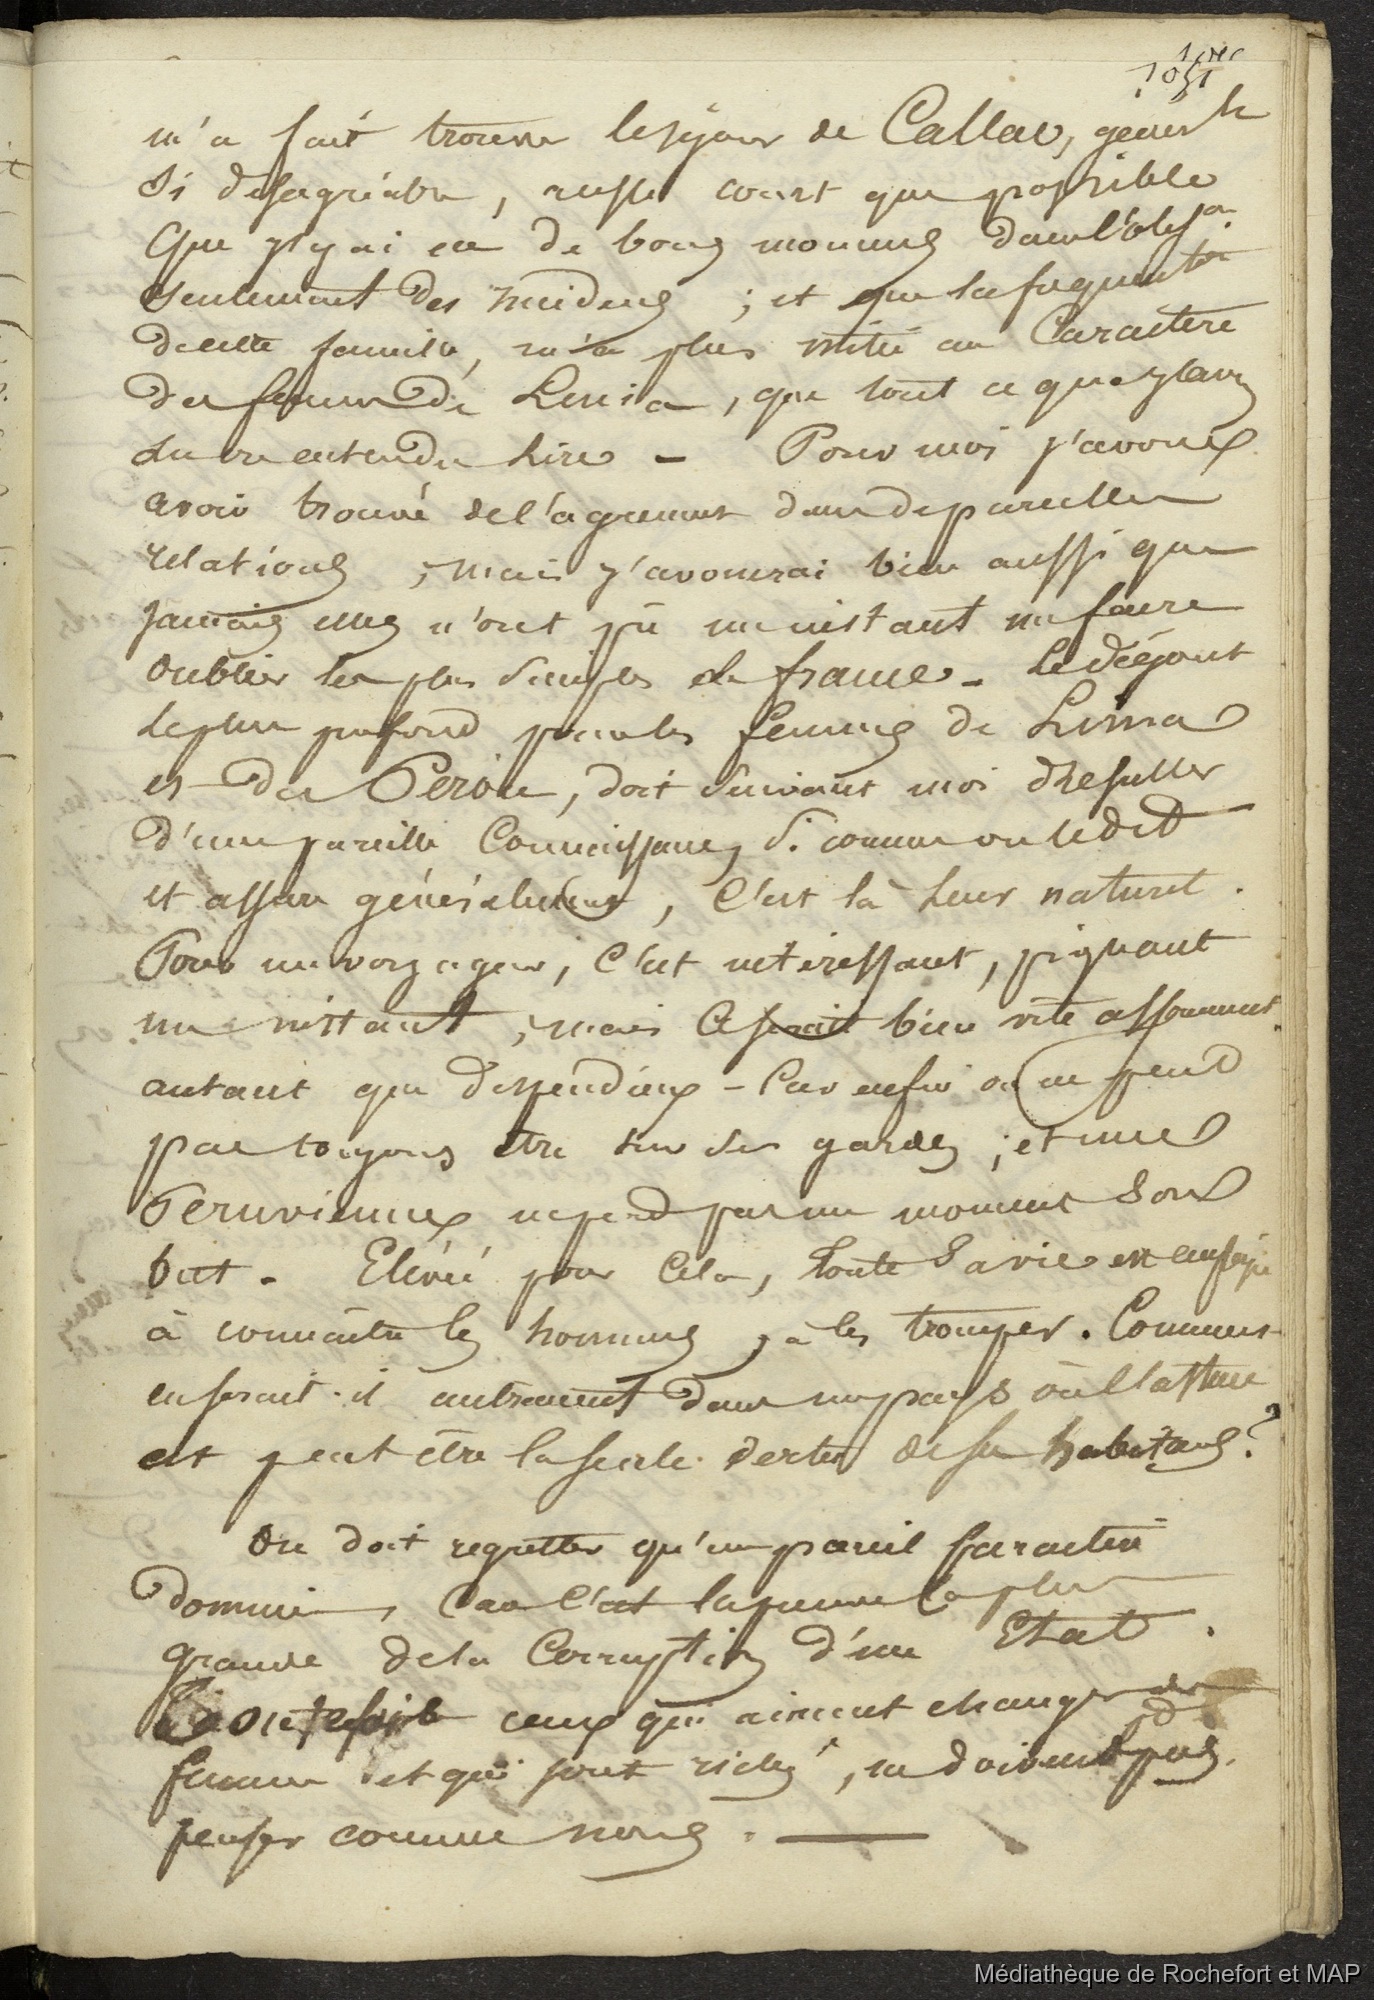 1051
m'a fait trouver le séjour de Callao, généralt
si désagréable, aussi court que possible
que j'y ai eu de bons momens dans l'obson
seulement des incidens ; et que la fréquenton
de cette famille, m'a plus initié au Caractère
des femmes de Lima, que tout ce que j'avais
lu ou entendu dire - Pour moi j'avoue
avoir trouvé de l'agrément dans de pareilles
relations ; mais j'avouerai bien aussi que
jamais elles n'ont pû un instant me faire
oublier les plus simples de france - Le dégout
le plus profond pour les femmes de Lima
et du Pérou, doit suivant moi résulter
d'une pareille Connaissance, si comme on le dit
et assez généralement, c'est là leur naturel.
Pour un voyageur, c'est intéressant, piquant
un instant ; mais ce serait bien vite assommant
autant que dispendieux - Car enfin on ne peut
pas toujours être sur ses gardes ; et une
Péruvienne ne perd pas un moment son
but - Elevée pour cela, toute sa vie est employée
à connaître les hommes, à les tromper. Comment
en serait-il autrement dans un pays où l'astuce
est peut être la seule vertu de ses habitans ?
On doit regretter qu'un pareil caractère
domine, Car c'est la preuve la plus
grande de la Corruption d'un Etat.
Toutefois ceux qui aiment changer de
femme et qui sont riches, ne doivent pas
penser comme nous. —
Médiathèque de Rochefort et MAP